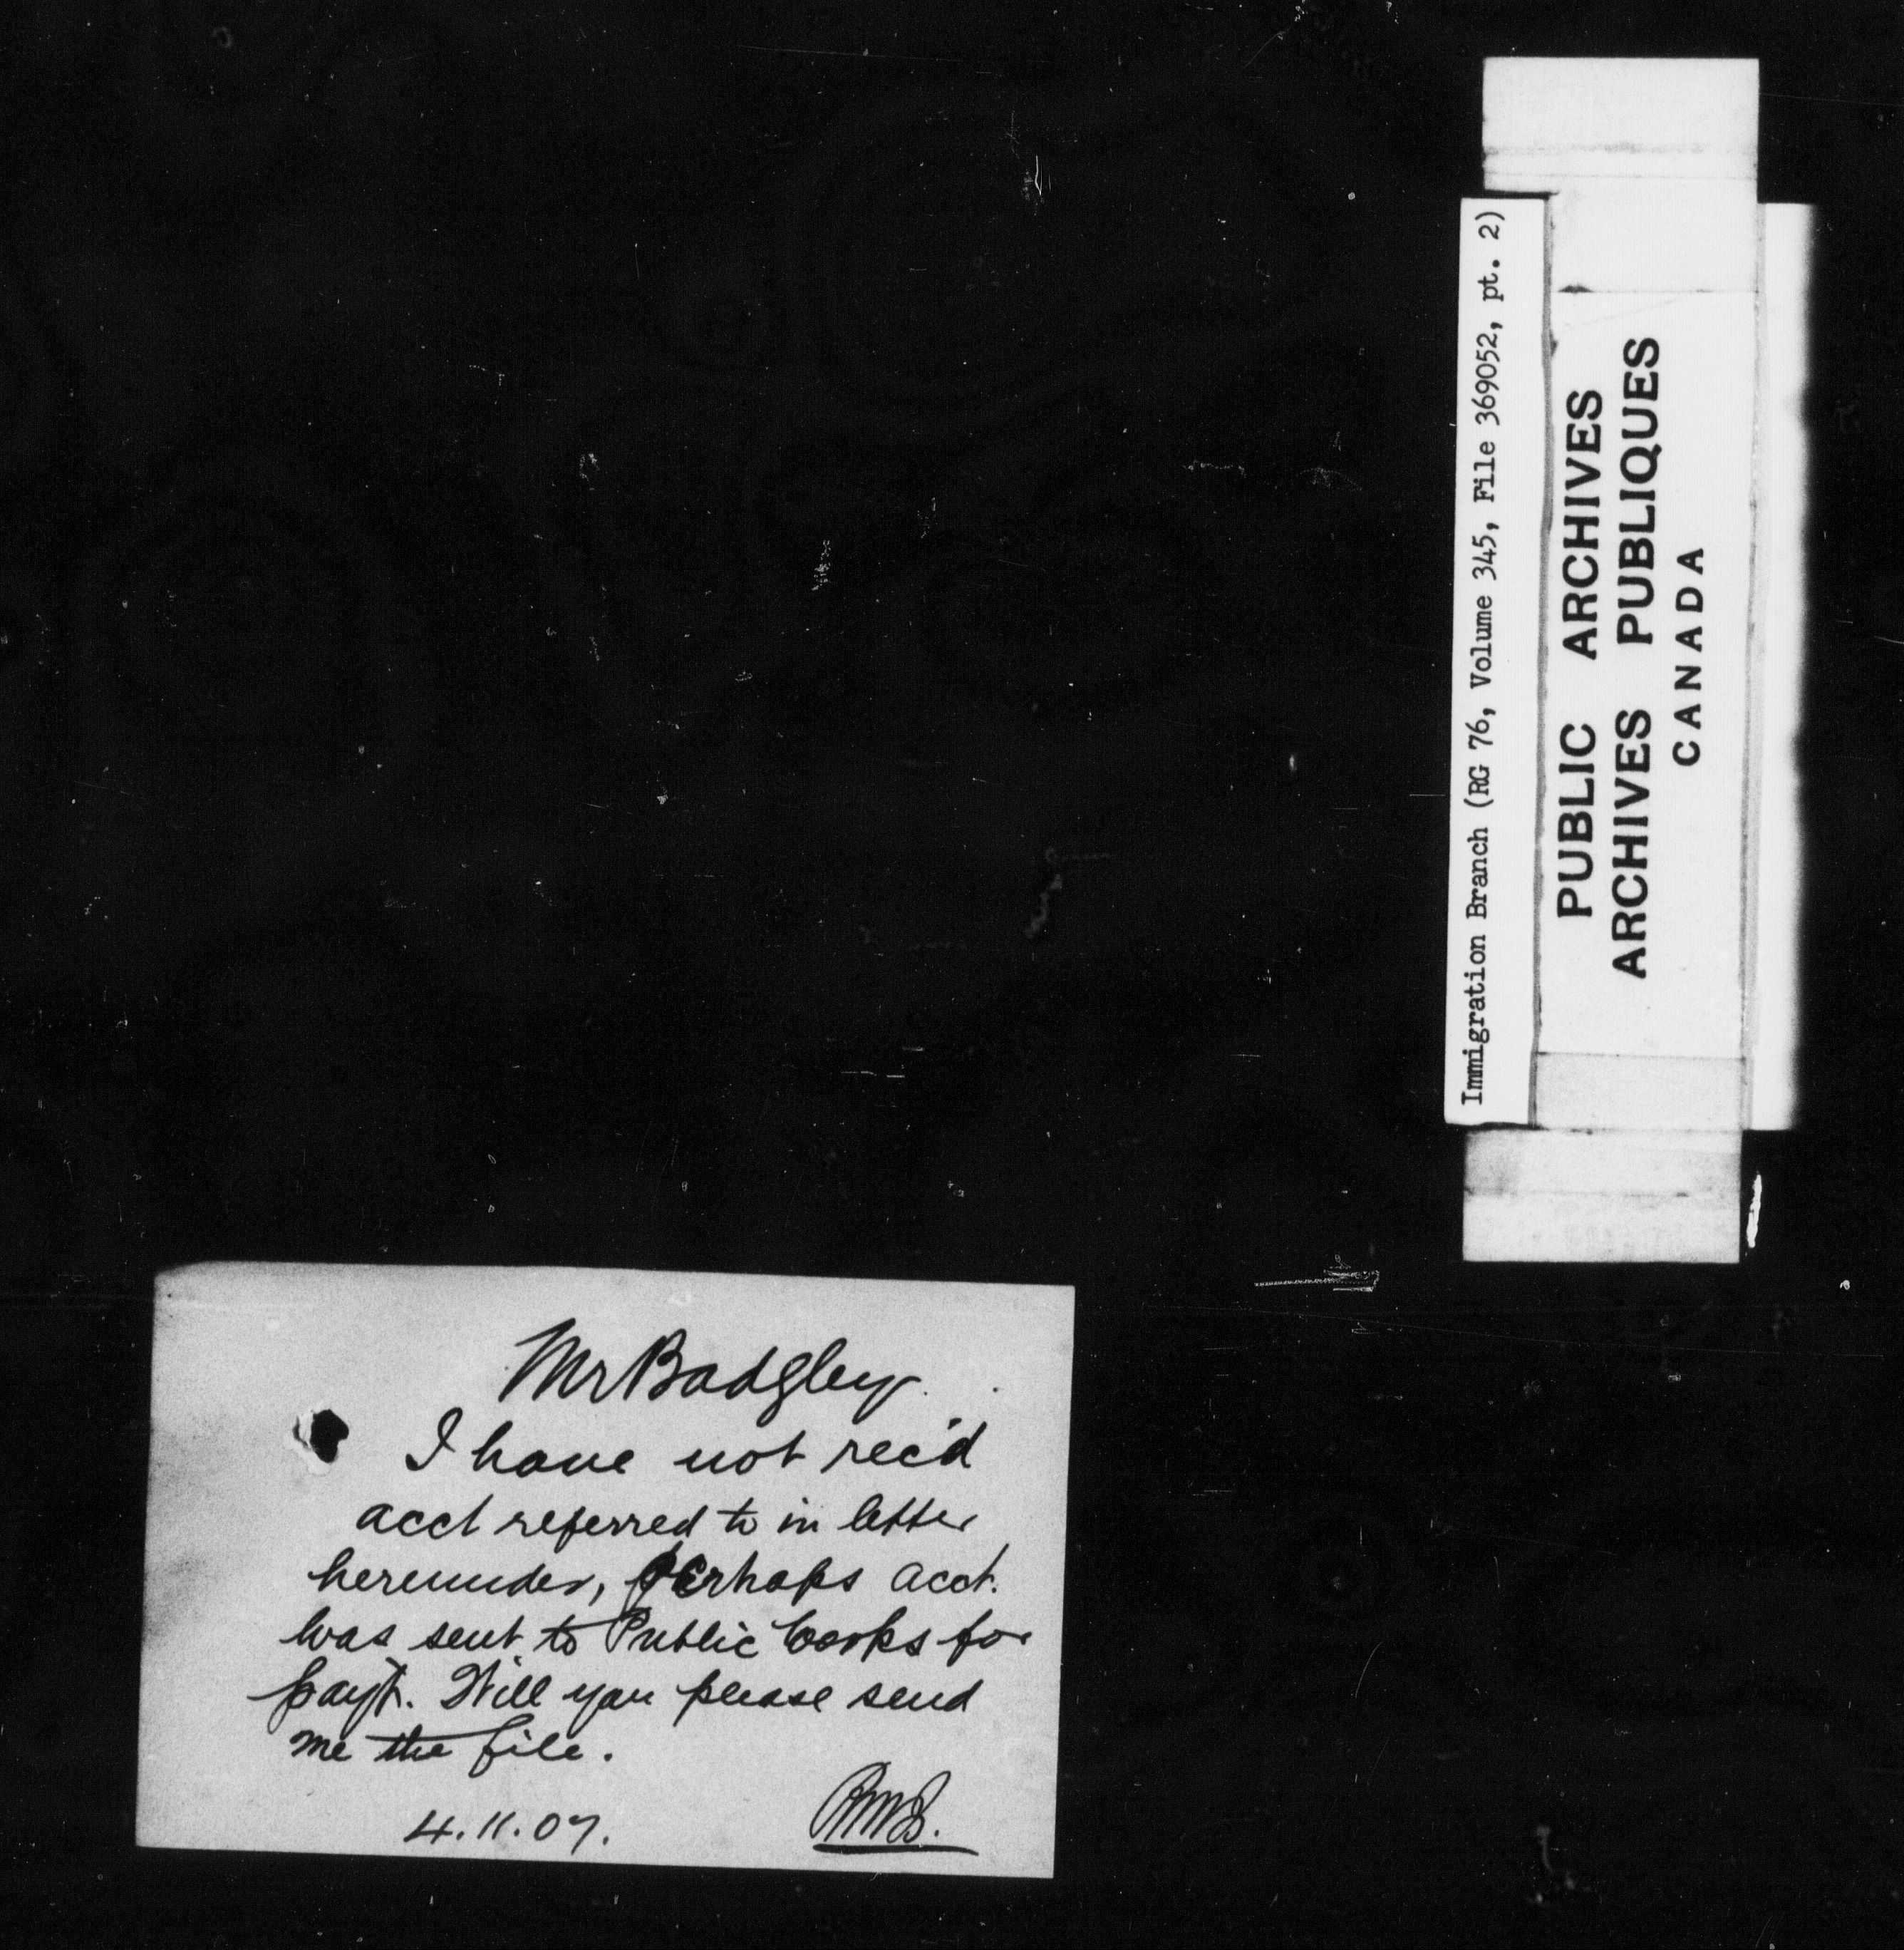 Immigration Branch (RG 76, Volume 345, File 369052, pt. 2)
PUBLIC ARCHIVES
ARCHIVES PUBLIQUES
CANADA
Mr Badgley.
I have not rec'd
acct referred to in letter
hereunder, perhaps acct.
was sent to Public Works for
payt. Will you please send
me the file.
4.11.07.